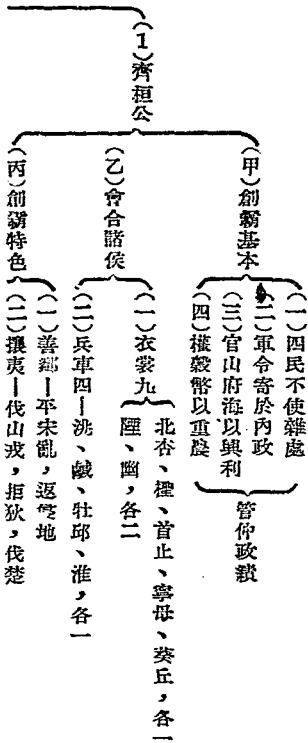 (1)齊桓公
(甲)創霸基本
(一)四民不使雜處
(二)軍令寄於內政
(三)官山府海以興利
(四)權穀幣以重農
管仲政績
(乙)會合諸侯
(一)衣裳九
北杏、檉、首止、寧母、葵丘，各一
、幽，各二
(二)兵車四—洮、鹹、牡邱、淮，各一
(丙)創霸特色
(一)善鄰—平宋亂，返魯地
(二)攘夷—伐山戎，拒狄，伐楚